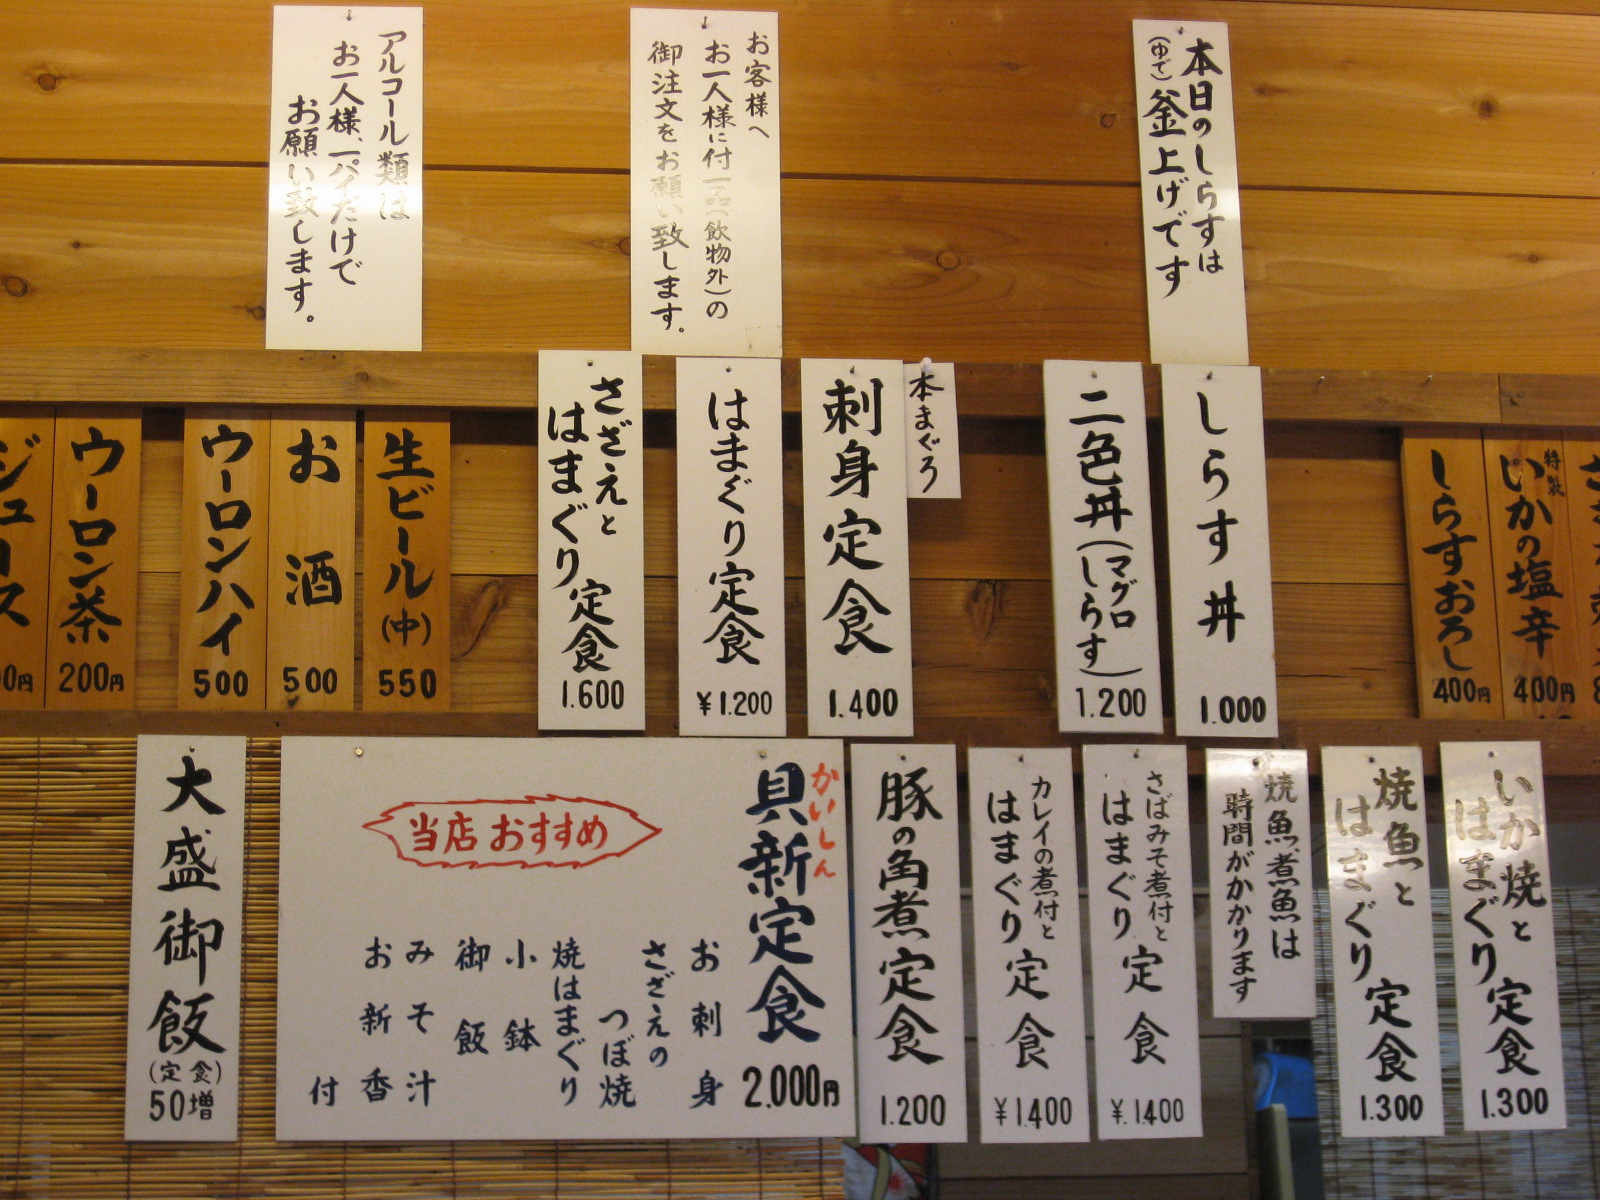 本日のしらすは
(ゆで)釜上げです
お客様へ
お一人様に付一品(飲物外)の
御注文をお願い致します。
アルコール類は
お一人様、一パイだけで
お願い致します。
特製
いかの塩辛
400円
しらすおろし
400円
しらす丼
1.000
二色丼(マグロ
しらす)
1.200
本まぐろ
刺身定食
1.400
はまぐり定食
¥1.200
さざえと
はまぐり定食
1.600
生ビール(中)
550
お酒
500
ウーロンハイ
500
ウーロン茶
200円
ジュース
いか焼と
はまぐり定食
1.300
焼魚と
はまぐり定食
1.300
焼魚煮魚は
時間がかかります
さばみそ煮付と
はまぐり定食
¥.1400
カレイの煮付と
はまぐり定食
¥1.400
豚の角煮定食
1.200
かいしん
貝新定食
2.000円
当店おすすめ
お刺身
さざえの
つぼ焼
焼はまぐり
小鉢
御飯
みそ汁
お新香
付
大盛御飯
(定食)
50増